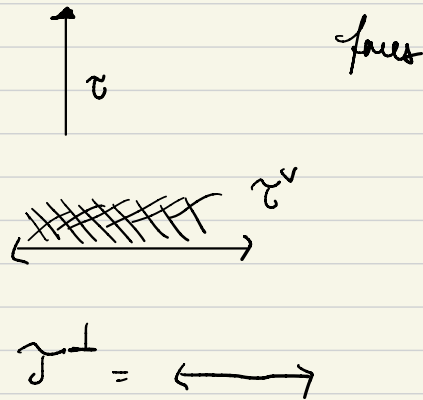 faces
τ
τ^∨
τ^⊥ =